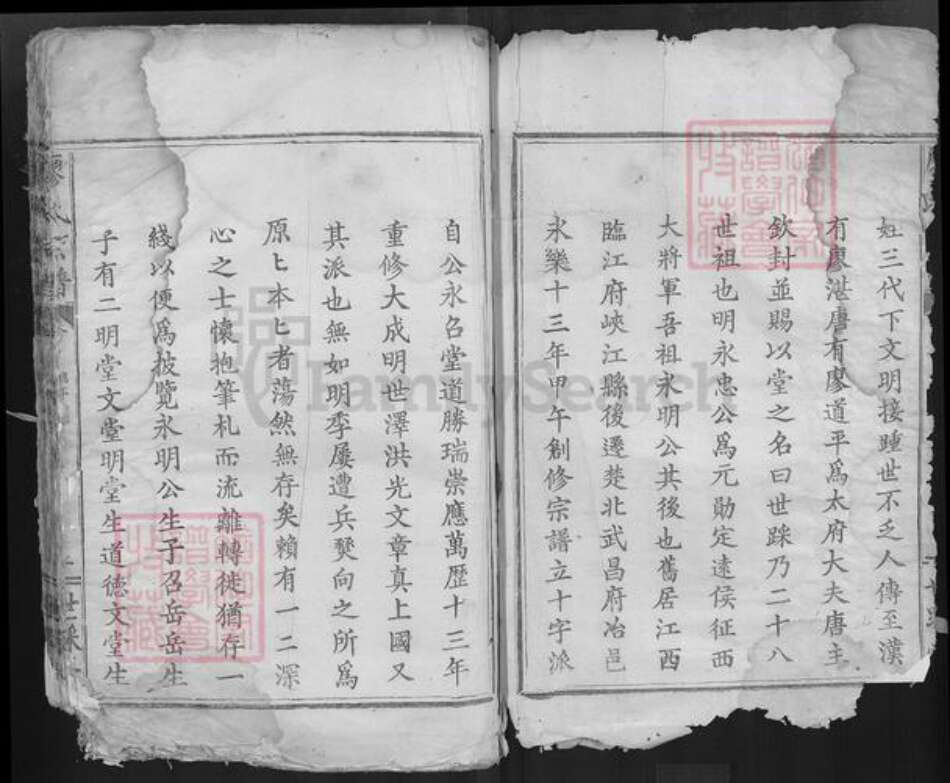 姓三代下文明接踵世不乏人傳至漢
有廖湛唐有廖道平爲太府大夫唐主
欽封並賜以堂之名曰世踩乃二十八
世祖也明永忠公爲元勛定遠侯征西
大將軍吾祖永明公其後也舊居江西
臨江府峽江縣後遷楚北武昌府冶邑
永樂十三年甲午創修宗譜立十字派
自公永召堂道勝瑞崇應萬歷十三年
重修大成明世澤洪光文章真上國又
其派也無如明季屡遭兵燹向之所爲
原匕本匕者蕩然無存矣賴有一二深
心之士懷抱筆札而流離轉徙猶存一
綫以便爲披覽永明公生子召岳岳生
子有二明堂文堂明堂生道德文堂生
廖氏宗譜
世踩
FamilySearch